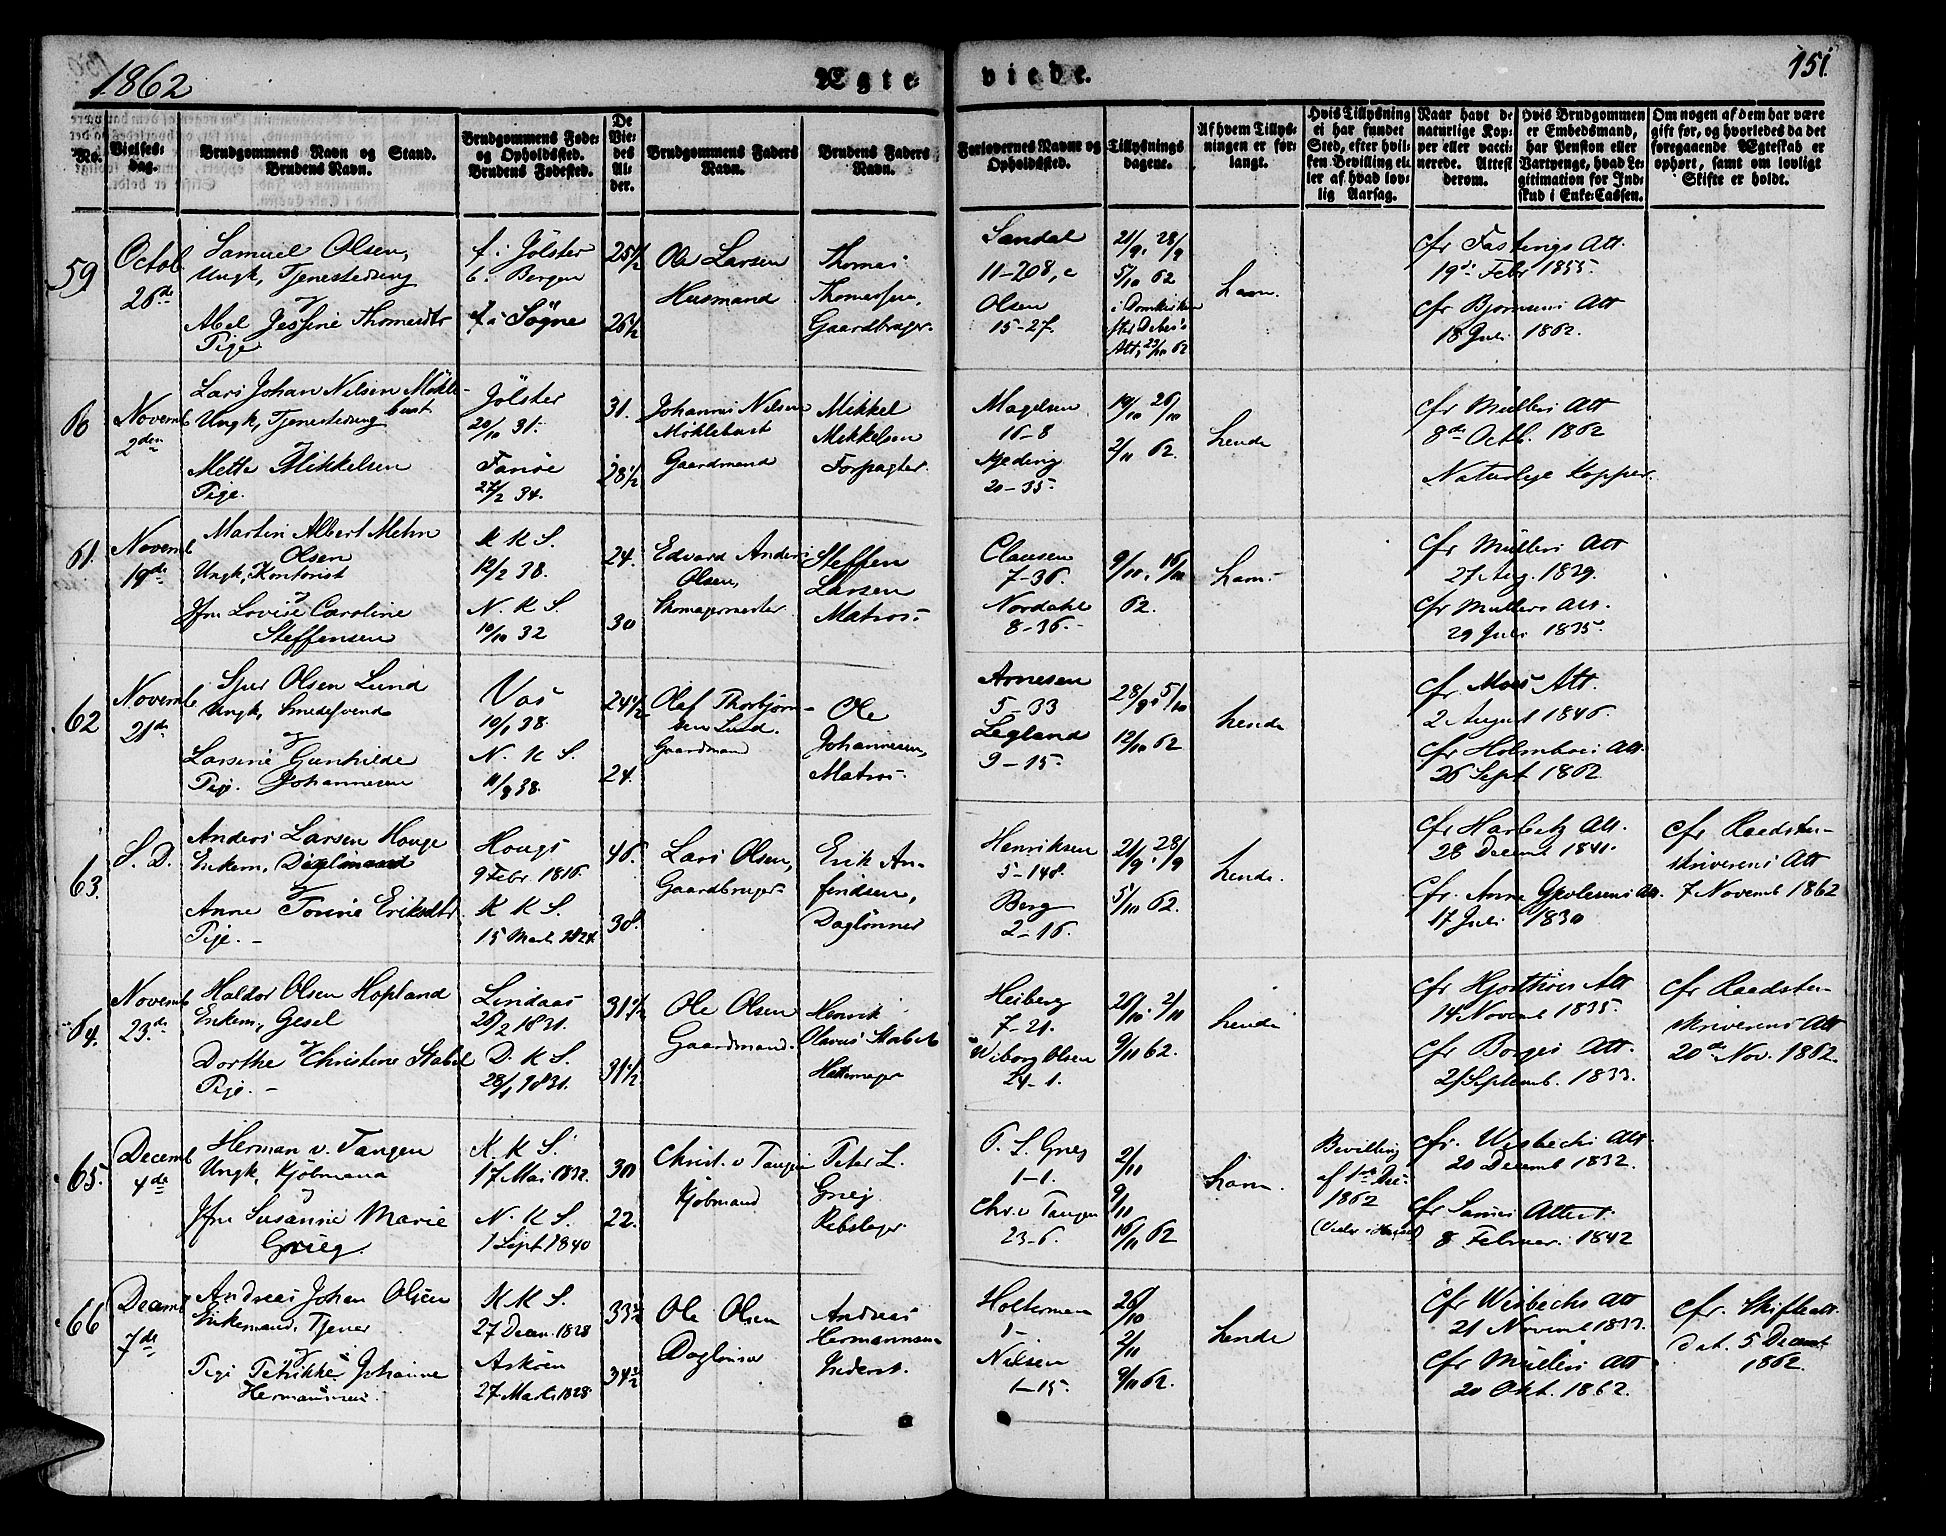 1862
Ægte
viede.
151.
No.
Vielses-
dag.
Brudgommens Navn og Stand.
Brudens Navn.
Brudgommens Føde-
og Opholdssted.
Brudens Fødested.
De
Vie-
des
Al-
der.
Brudgommens Faders
Navn.
Brudens Faders
Navn.
Forlovernes Navne og
Opholdssted.
Tillysnings
dagene.
Af hvem Tillys-
ningen er for-
langt.
Hvis Tillysning
ei har fundet
Sted, efter hvil-
ken Bevilling el-
ler af hvad lov-
lig Aarsag.
Naar havt de
naturlige Kop-
per eller vacci-
nerede. Attest
derom.
Hvis Brudgommen
er Embedsmand,
har Pension eller
Vartpenge, hvad Le-
gitimation for Ind-
skud i Enke-Cassen.
Om nogen af dem har være
gift før, og hvorledes da det
foregaaende Ægteskab er
ophørt, samt om lovligt
Skifte er holdt.
59
Octob
26de
Samuel Olsen,
Ungk, Tjenestedreng
&
Abel Jessine Thomesdtr
Pige
f. i Jölster
b. Bergen
f. i Sögne
25 1/2
26 1/2
Ole Larsen
Husmand
Thomas
Thomassen,
Gaardbruger
Sandal
11-208, c
Olsen
15-27.
21/9, 28/9
5/10 62
i Domkirken
Att, 23/10 62
ham.
cfr Fastings Att.
19de Febr 1855
cfr Bjornsens Att
18 Juli 1862.
Novemb
2den
Lars Johan Nilsen Mökle-
bust
Ungk, Tjenestedreng
&
Mette Mikkelsen
Pige.
Jölster
20/10 31.
Fanöe
27/2 34.
31.
28 1/2
Johannes Nilsen
Möklebust
Gaardmand
Mikkel
Mikkelsen
Forpagter.
Magelsen
16-8
20-35
19/10 26/10
2/11 62.
hende
cfr Müllers Att
8de Octb. 1862
Naturlige Kopper.
61.
Novemb
19de
Martin Albert Mehn
Olsen
Ungk, Kontorist
&
Jfr Lovise Caroline
Steffensen
K K S.
12/2 38.
N. K S.
10/10 32
24.
30
Edvard Ander
Olsen,
Skomagermester
Steffen
Larsen
Matros.
Clausen
7-36.
Nordahl
8-36.
9/11, 16/11
62.
ham
cfr Müllers Att
27 Aug. 1839.
cfr Müllers Att.
29 Juli 1835.
62
Novemb
21de
Sjur Olsen Lund
Ungk, Smedesvend
&
Larsine Gunhilde
Pige. Johannesen
Vos
10/1 38.
N. K S.
11/8 38.
24 1/2
24.
Olaf Thorbjörn-
sen Lund.
Gaardmand
Ole
Johannesen,
Matros.
Arnesen
5-33
Legland
9-15.
28/9, 5/10
12/10 62
hende
cfr. Moes Att.
2 August 1846.
cfr Holmboes Att.
26 Sept 1862.
63.
S. D.
Anders Larsen Houge
Enkem, Daglönner
&
Anne Tonnie Eriksdtr
Pige.
Hougs
9 Febr. 1816.
K K S.
15 Mart. 1824.
46.
38.
Lars Olsen,
Gaardbruger
Erik An-
findsen,
Daglönner
Henriksen
5-148.
Berg
2-16.
21/9, 28/9
5/10 62.
hende.
cfr Harbitz Att.
28 Decemb 1841.
17 Juli 1830
cfr Raadstu-
skriverens Att
7 Novemb 1862
64.
Novemb
23de
Haldor Olsen Hopland
Enkem, Gesel
&
Dorthe Christine Stabel
Pige.
Lindaas
26/2 1831.
D. K S.
28/1 1831.
31 1/2
31 1/2
Ole Olsen
Gaardmand.
Henrik
Olavus Stabel
Hattemager
Heiberg
7-21.
Wiborg Olsen
24-1.
26/10, 2/11
9/11 62.
hende
cfr Hjorthöes Att
14 Novemb 1835.
cfr Borges Att.
21 Septemb. 1833.
cfr Raadstu-
skriverens Att
20de Nov. 1862.
65.
Decemb
4de
Herman v. Tangen
Ungk, Kjöbmand
&
Jfr Susanne Marie
Grieg.
K. K S.
17 Mai 1832.
N. K S.
1 Sept 1840
30
22.
Christ. v Tangen
Kjöbmand
Peter L.
Grieg
Rebslager
P. L Grieg
1-1.
Chr. v Tangen
23-6.
2/11
9/11
16/11 62
ham.
Bevilling
af 1ste Dec
1862
(Viede i Huset)
cfr. Wisbechs Att.
20 Decemb 1832.
8 Februar. 1842
66
Decemb
7de
Andreas Johan Olsen
Enkemand, Tjener
&
Pige Petrikke Johanne
Hermannsen.
K K S.
27 Decem. 1828
Asköen
27 Mart. 1828
Ole Olsen
Daglönner
Andreas
Hermannsen
Inderst.
Holterman
1-
Nilsen
1-15.
26/10
2/11
9/11 62.
hende
cfr Wisbechs Att
21 Novemb 1833.
cfr Müllers Att
20 Okt. 1862.
cfr. Skifteatt.
dat. 5 Decemb.
1862.